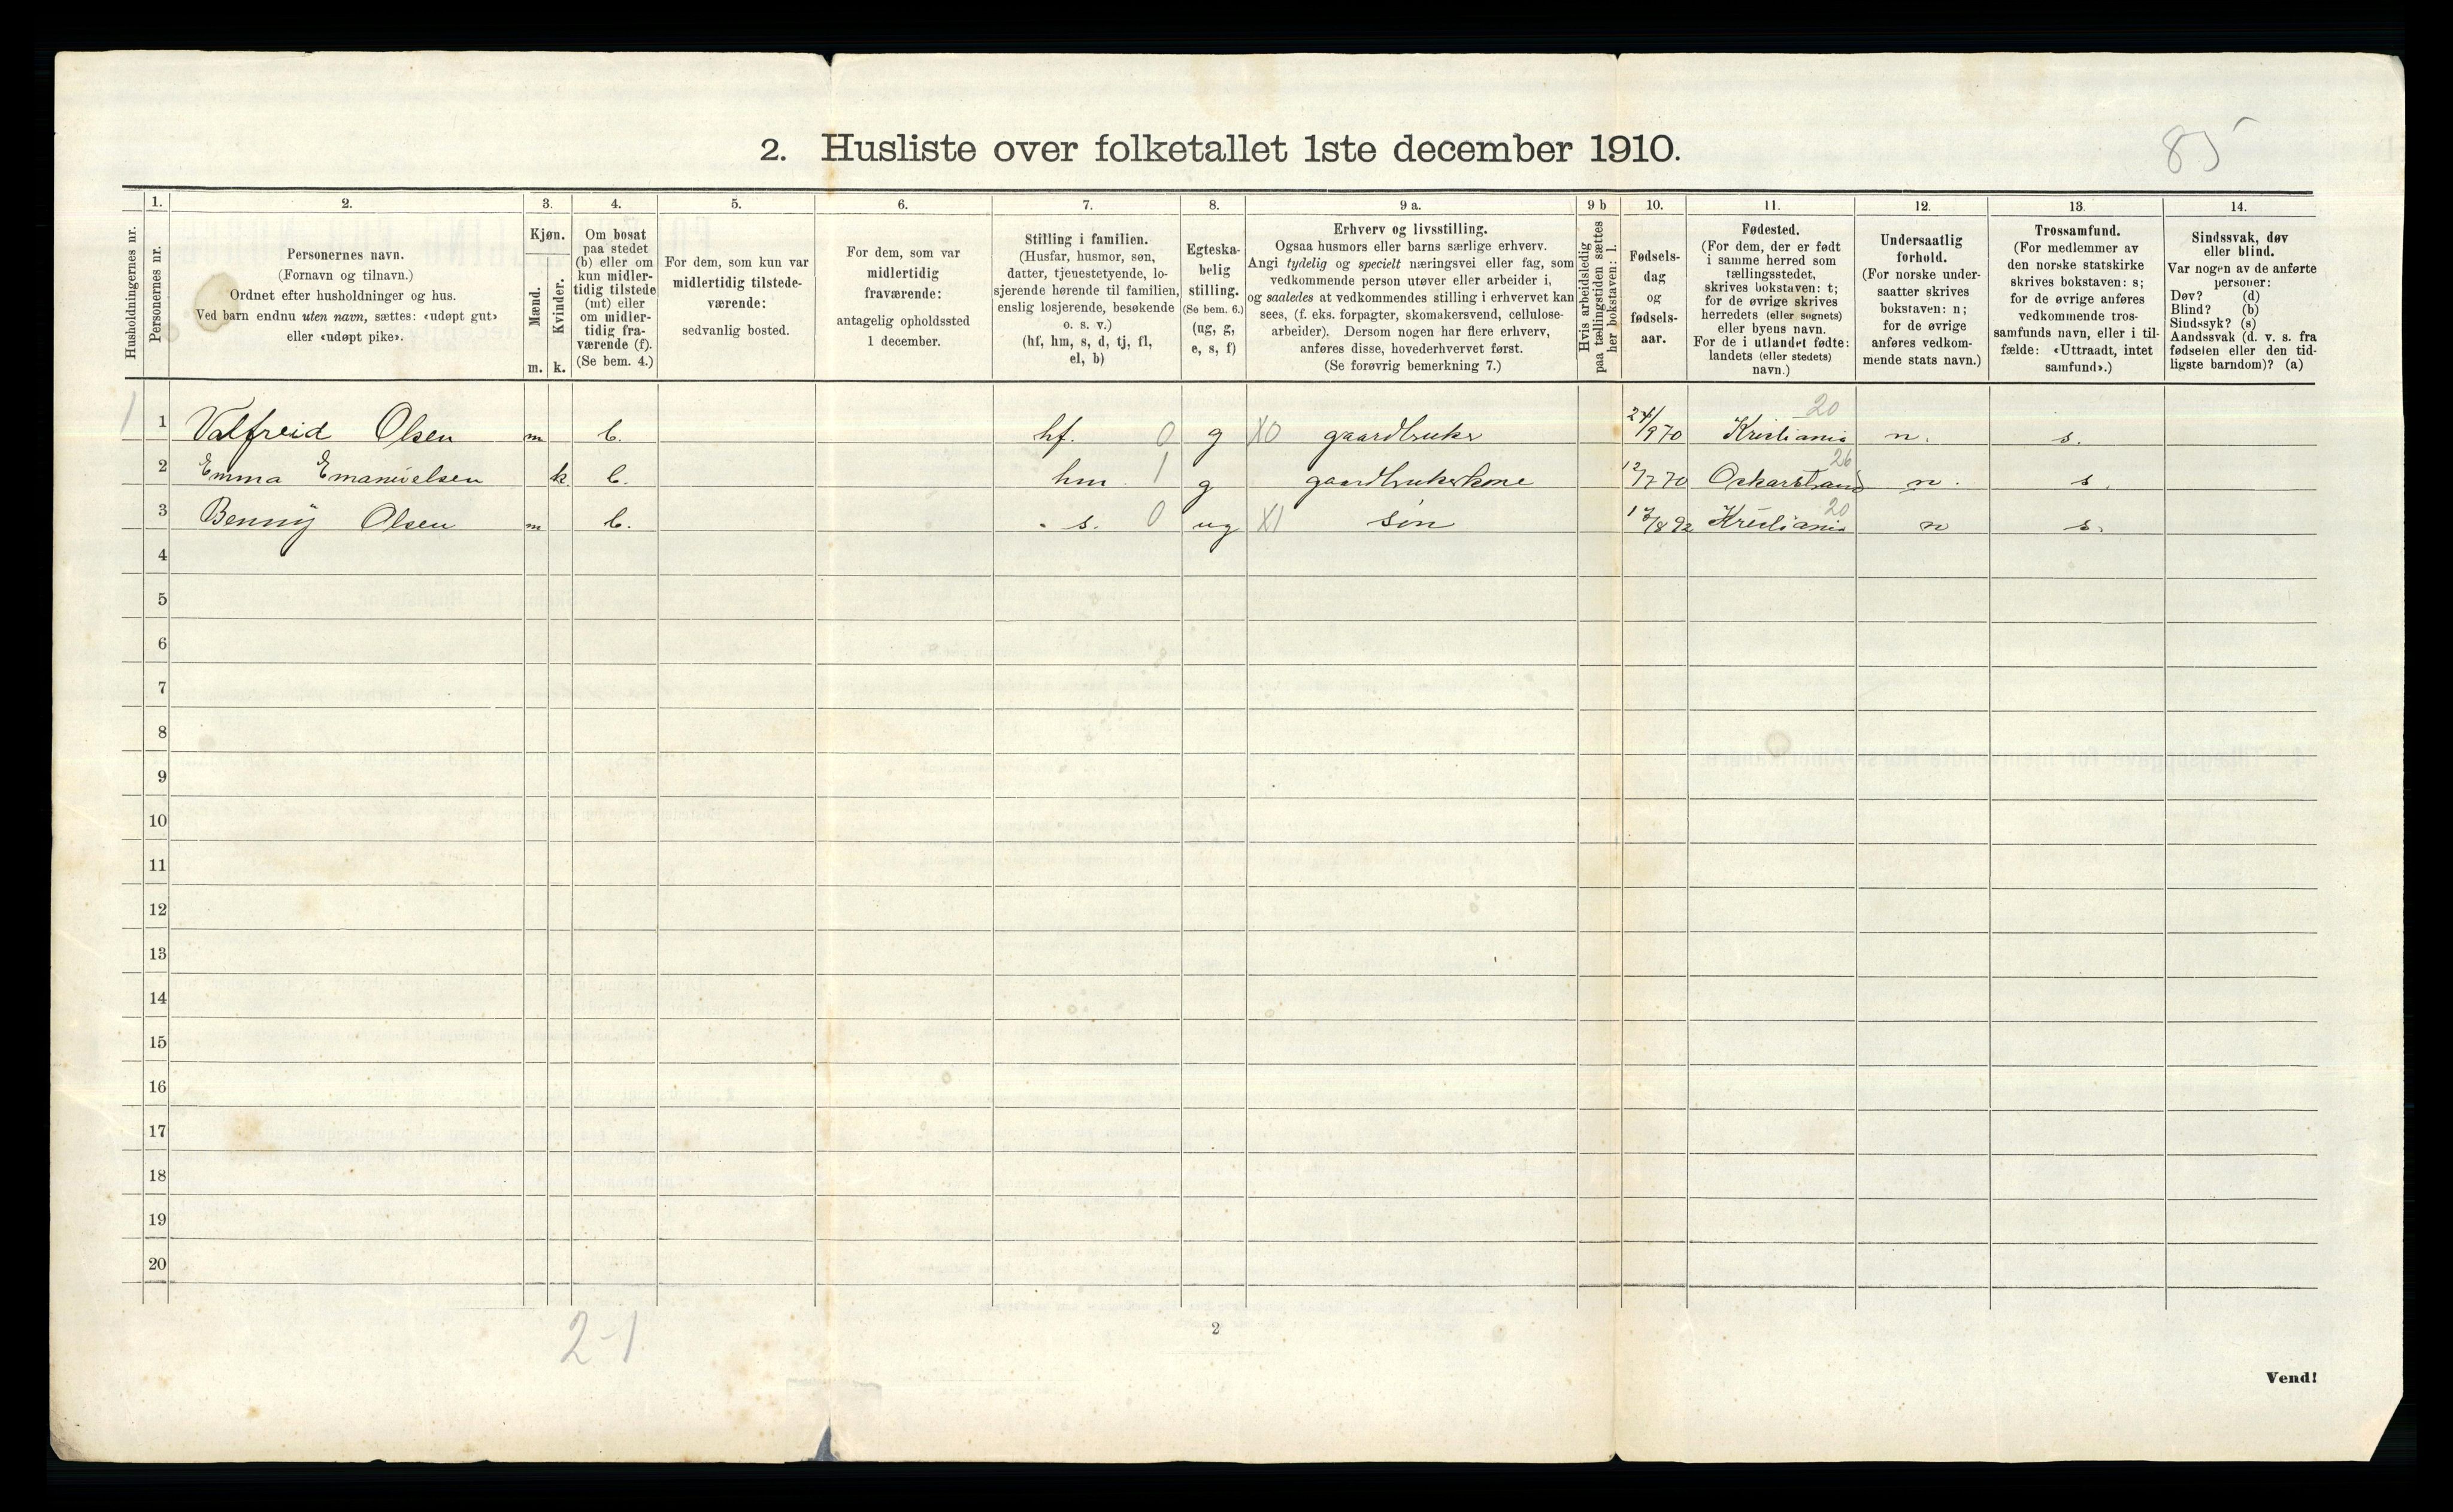 85
2. Husliste over folketallet 1ste december 1910.
1. 2. 3. 4. 5. 6. 7. 8. 9 a. 9 b 10. 11. 12. 13. 14.
Husholdningernes nr.
Personernes nr.
Personernes navn.
(Fornavn og tilnavn.)
Ordnet efter husholdninger og hus.
Ved barn endnu uten navn, sættes: «udøpt gut»
eller «udøpt pike».
Kjøn.
Mænd.
Kvinder.
m. k.
Om bosat
paa stedet
(b) eller om
kun midler-
tidig tilstede
(mt) eller
om midler-
tidig fra-
værende (f).
(Se bem. 4.)
For dem, som kun var
midlertidig tilstede-
værende:
sedvanlig bosted.
For dem, som var
midlertidig
fraværende:
antagelig opholdssted
1 december.
Stilling i familien.
(Husfar, husmor, søn,
datter, tjenestetyende, lo-
sjerende hørende til familien,
enslig losjerende, besøkende
o. s. v.)
(hf, hm, s, d, tj, fl,
el, b)
Egteska-
belig
stilling.
(Se bem. 6.)
(ug, g,
e, s, f)
Erhverv og livsstilling.
Ogsaa husmors eller barns særlige erhverv.
Angi tydelig og specielt næringsvei eller fag, som
vedkommende person utøver eller arbeider i,
og saaledes at vedkommendes stilling i erhvervet kan
sees, (f. eks. forpagter, skomakersvend, cellulose-
arbeider). Dersom nogen har flere erhverv,
anføres disse, hovederhvervet først.
(Se forøvrig bemerkning 7.)
Hvis arbeidsledig
paa tællingstiden sættes
her bokstaven: l.
Fødsels-
dag
og
fødsels-
aar.
Fødested.
(For dem, der er født
i samme herred som
tællingsstedet,
skrives bokstaven: t;
for de øvrige skrives
herredets (eller sognets)
eller byens navn.
For de i utlandet fødte:
landets (eller stedets)
navn.)
Undersaatlig
forhold.
(For norske under-
saatter skrives
bokstaven: n;
for de øvrige
anføres vedkom-
mende stats navn.)
Trossamfund.
(For medlemmer av
den norske statskirke
skrives bokstaven: s;
for de øvrige anføres
vedkommende tros-
samfunds navn, eller i til-
fælde: «Uttraadt, intet
samfund».)
Sindssvak, døv
eller blind.
Var nogen av de anførte
personer:
Døv? (d)
Blind? (b)
Sindssyk? (s)
Aandssvak (d. v. s. fra
fødselen eller den tid-
ligste barndom)? (a)
1 1 Valfreid Olsen m b. hf. 0 g X0 gaardbruker 24/9 70 Kristiania 20 n. s.
2 Emma Emanuelsen k b. hm. 1 g gaardbrukerkone 12/7 70 Oskarstand 26 n. s.
3 Benny Olsen m b. s. 0 ug X1 søn 8 92 Kristiania 20 n s.
4
5
6
7
8
9
10
11
12
13
14
15
16
17
18
19
20
2-1
2
Vend!